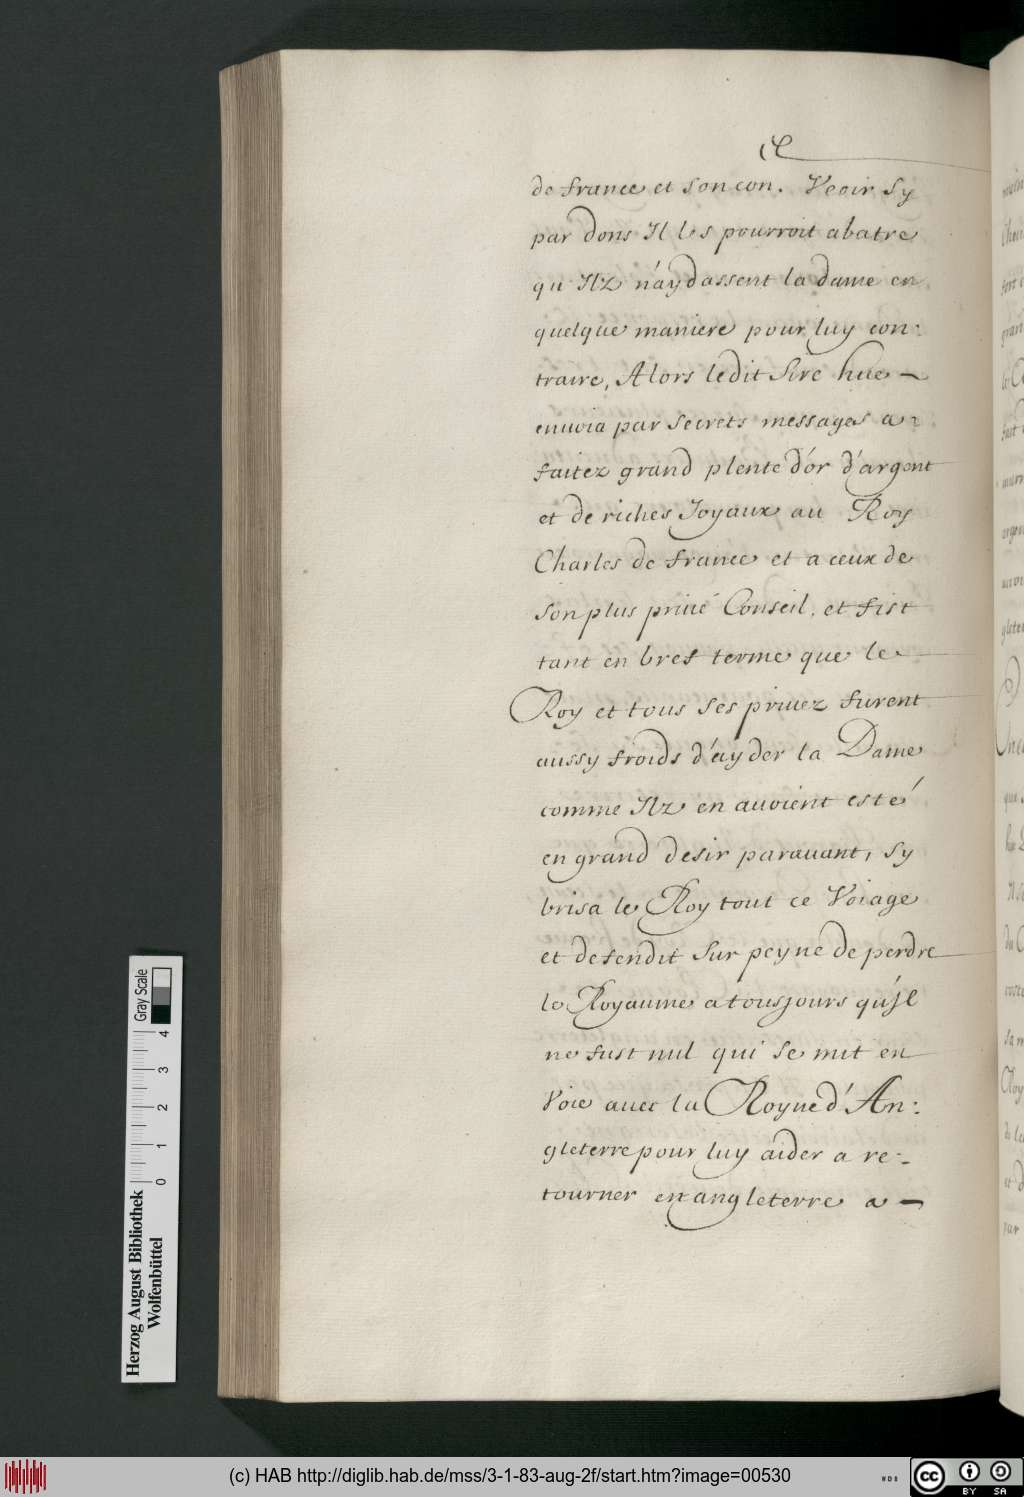 de france et son con. Veoir sy
par dons Il les pourroit abatre
qu Ilz n'aydassent la dame en
quelque maniere pour luy con:
traire, Alors ledit Sire hue —
enuoia par secrets messages a-
faitez grand plente d'or d'argent
et de riches Joyaux au Roy
Charles de france et a ceux de
son plus priué Conseil, et fist
tant en bref terme que le
Roy et tous ses priuez furent
aussy froids d'ayder la Dame
comme Ilz en auoient esté
en grand desir parauant, sy
brisa le Roy tout ce Voiage
et defendit sur peyne de perdre
le Royaume a tousjours qu'Jl
ne fust nul qui se mit en
Voie auec la Royne d'An:
gleterre pour luy aider a re:-
tourner en angleterre a —
Herzog August Bibliothek
Wolfenbüttel
0 1 2 3 4
Gray Scale
(c) HAB http://diglib.hab.de/mss/3-1-83-aug-2f/start.htm?image=00530
WDB
cc BY SA